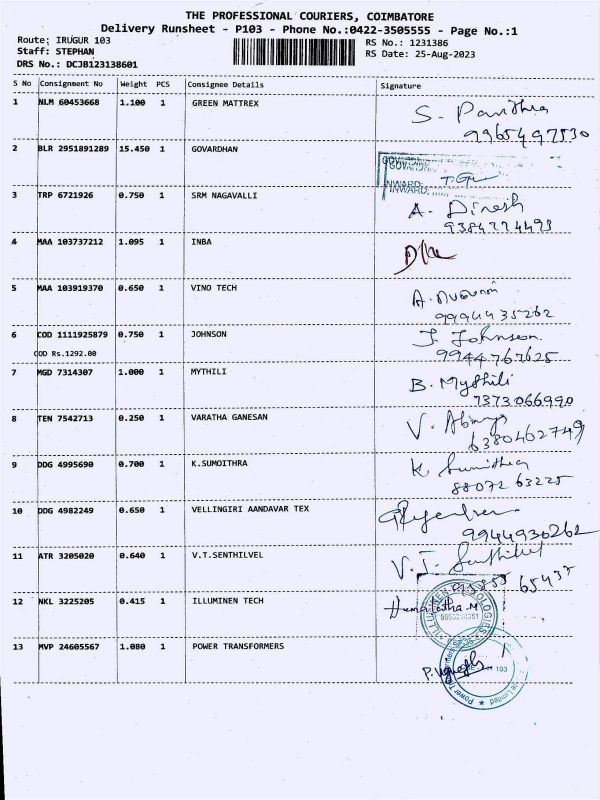 THE PROFESSIONAL COURIERS, COIMBATORE
Delivery Runsheet - P103 - Phone No.:0422-3505555 - Page No.:1
Route: IRUGUR 103
RS No.: 1231386
Staff: STEPHAN
RS Date: 25-Aug-2023
DRS No.: DCJB123138601
S No Consignment No Weight PCS Consignee Details Signature
1 NLM 60453668 1.100 1 GREEN MATTREX S. Pavithra
9965497530
2 BLR 2951891289 15.450 1 GOVARDHAN
INWARD:
3 TRP 6721926 0.750 1 SRM NAGAVALLI A. Dinesh
9384774493
4 MAA 103737212 1.095 1 INBA
5 MAA 103919370 0.650 1 VINO TECH A.
9994435262
6 COD 1111925879 0.750 1 JOHNSON J. Johnson.
COD Rs.1292.00 9944767625
7 MGD 7314307 1.000 1 MYTHILI B. Mythili
7373066990
8 TEN 7542713 0.250 1 VARATHA GANESAN V. Abinaya
6380462749
9 DDG 4995690 0.700 1 K.SUMOITHRA K Sumithra
88072 63225
10 DDG 4982249 0.650 1 VELLINGIRI AANDAVAR TEX
9944936262
11 ATR 3205020 0.640 1 V.T.SENTHILVEL V.T. Senthilvel
65437
12 NKL 3225205 0.415 1 ILLUMINEN TECH Hemalatha.M
13 MVP 24605567 1.080 1 POWER TRANSFORMERS
103